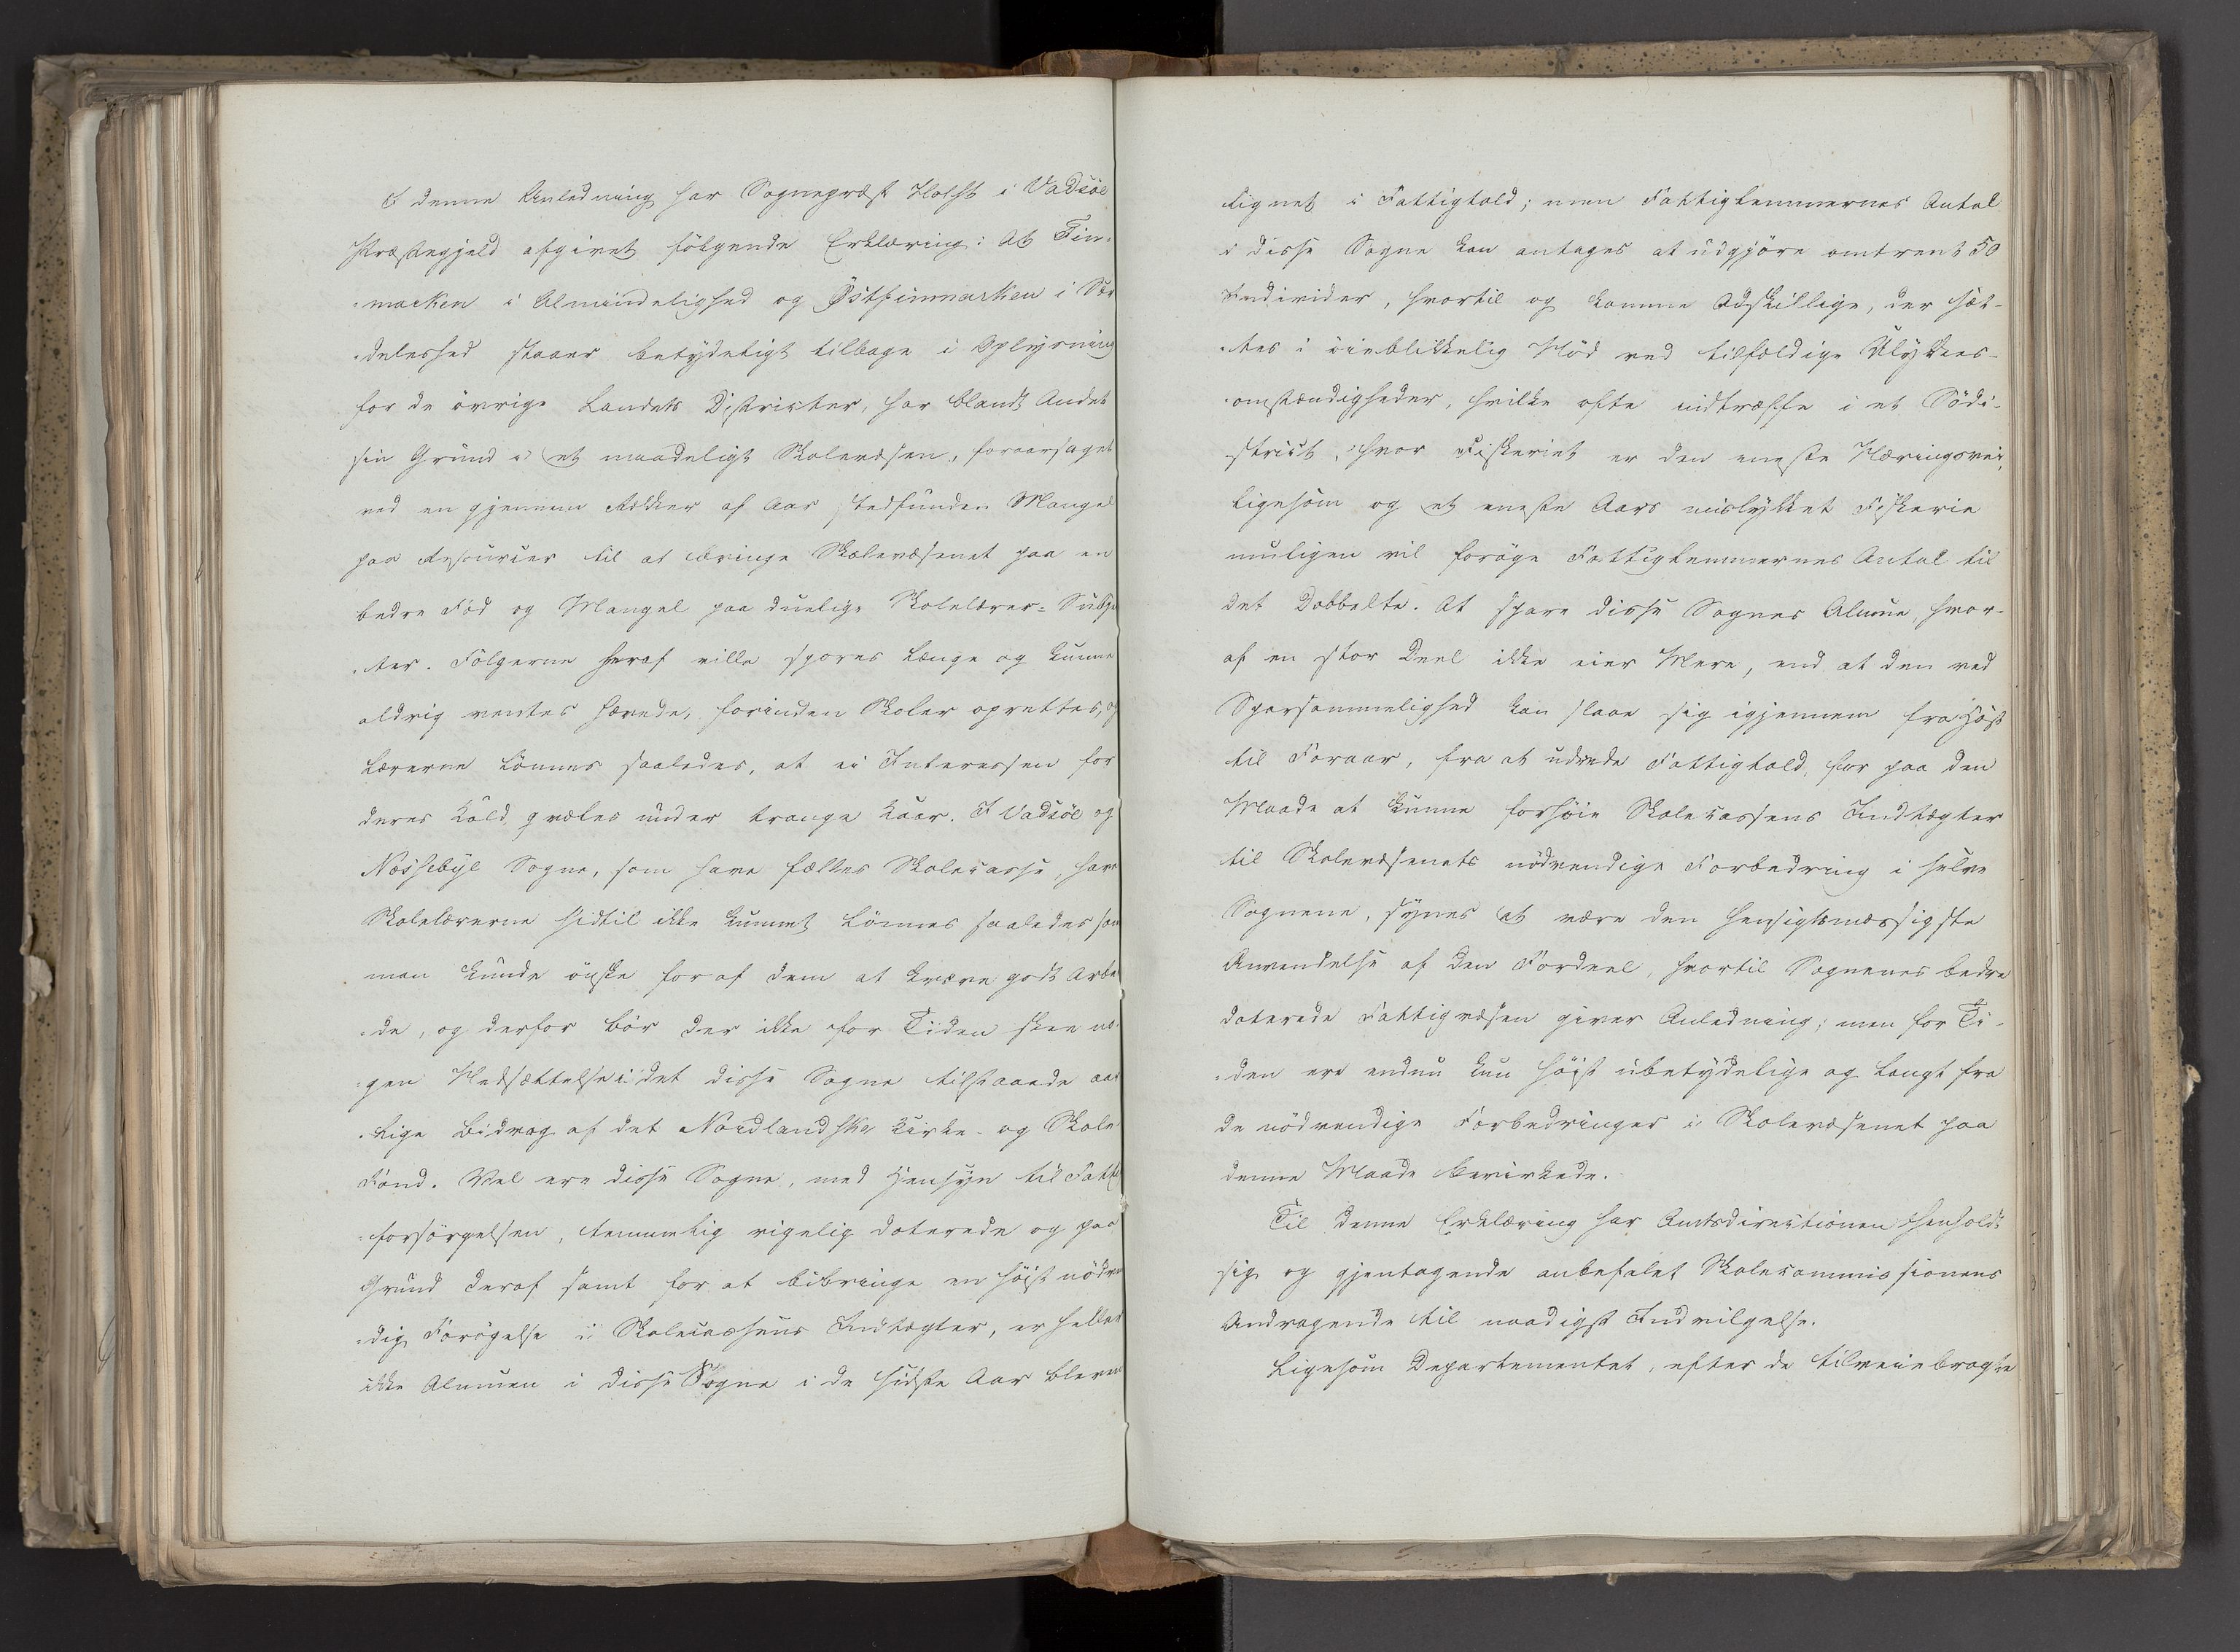 I denne Anledning har Sognepræst Holst i Vadsöe
Præstegjeld afgivet følgende Erklæring: At Fin-
marken i Almindelighed og Østfinmarken i Sær
deleshed staaer betydeligt tilbage i Oplysning
for de övrige Landets Districter, har blandt Andet
sin Grund i et maadeligt Skolevæsen, foraarsaget
ved en gjennem Rækker af Aar stedfunden Mangel
paa Resourcer til at bringe Skolevæsenet paa en
bedre Fod og Mangel paa duelige Skolelærer-Subje
cter. Fölgerne heraf ville spores længe og kunne
aldrig ventes hævede, forinden Skoler oprettes, og
Lærerne lönnes saaledes, at ei Interessen for
deres Kald qvæles under trange Kaar. I Vadsöe og
Næssebye Sogne, som have fælles Skolecasse, have
Skolelærerne hidtil ikke kunnet lönnes saaledes som
man kunde önske for af dem at kræve godt Arbei
de, og derfor bör der ikke for Tiden skee no-
gen Nedsættelse i det disse Sogne tilstaaede aar
lige Bidrag af det Nordlandske Kirke- og Skole
Fond. Vel ere disse Sogne, med Hensyn til Fattig
forsörgelsen, temmelig rigelig doterede og paa
Grund deraf samt for at bibringe en höist nödven
dig Forögelse i Skolecassens Indtægter, er heller
ikke Almuen i disse Sogne i de sidste Aar bleven
lignet i Fattigtold; men Fattiglemmernes Antal
i disse Sogne kan antages at udgjöre omtrent 50
Individer, hvortil og komme Adskillige, der sæt-
tes i öieblikkelig Nöd ved tilfældige Ulykkes-
omstændigheder, hvilke ofte indtræffe i et Södi-
strict, hvor Fiskeriet er den eneste Næringsvei,
ligesom og et eneste Aars mislykket Fiskerie
muligen vil foröge Fattiglemmernes Antal til
det Dobbelte. At spare disse Sognes Almue, hvor-
af en stor Deel ikke eier Mere, end at den ved
Sparsommelighed kan slaae sig igjennem fra Höst
til Foraar, fra at udrede Fattigtold, for paa den
Maade at kunne forhöie Skolecassens Indtægter
til Skolevæsenets nödvendige Forbedring i selve
Sognene, synes at være den hensigtsmæssigste
Anvendelse af den Fordeel, hvortil Sognenes bedre
doterede Fattigvæsen giver Anledning; men for Ti-
den ere endnu kun höist ubetydelige og langt fra
de nödvendige Forbedringer i Skolevæsenet paa
denne Maade bevirkede.
Til denne Erklæring har Amtsdirectionen henholdt
sig og gjentagende anbefalet Skolecommissionens
Andragende til naadigst Indvilgelse.
Ligesom Departementet, efter de tilveiebragte